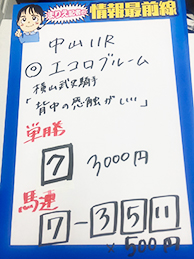 情報最前線
中山11R
◎エコロブルーム
横山武史騎手
「背中の感触がいい」
単勝
7 3000円
馬連
7-3 5 11
×500円